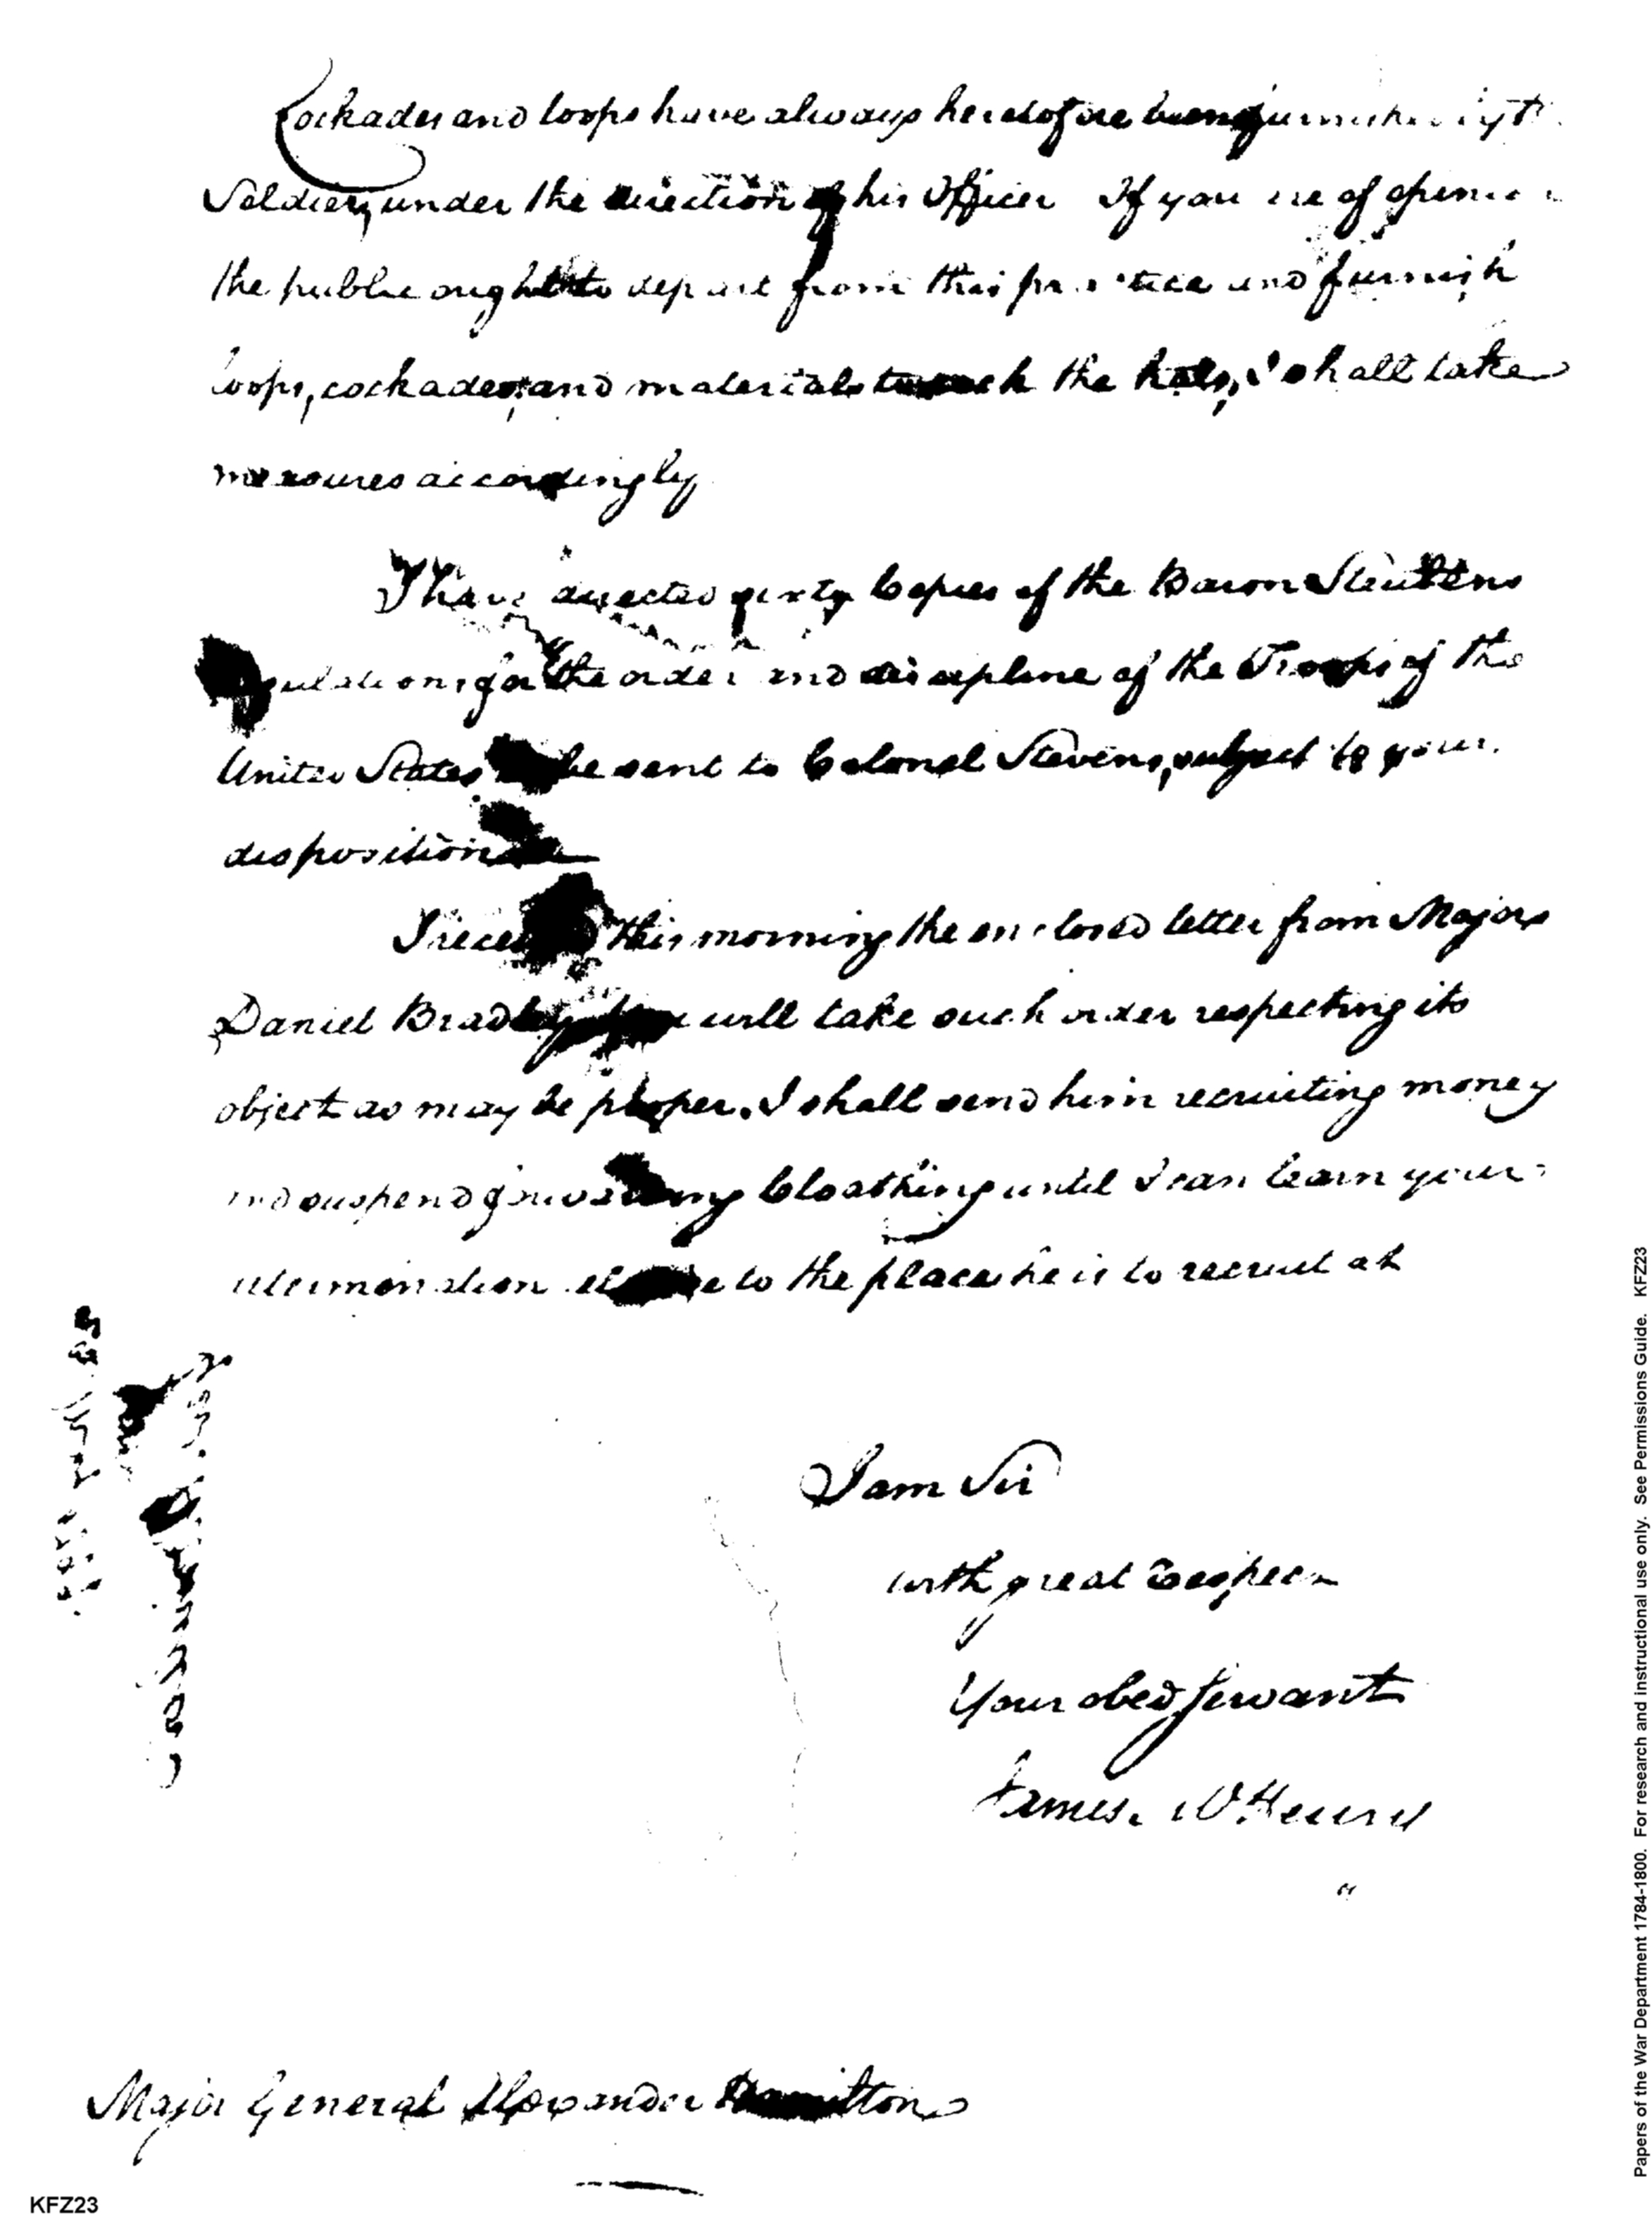 Cockades and loops have always heretofore been furnished by the
Soldiers, under the direction of his Officer If you are of opinion
the public ought to depart from this practice and furnish
loops, cockades, and materials to cock the hats, I shall take
measures accordingly
I have directed Copies of the Baron Steubens
Regulations for the order and discipline of the Troops of the
United States to be sent to Colonel Stevens, subject to your
disposition
I received this morning the enclosed letter from Major
Daniel Bradley you will take such order respecting its
object as may be proper. I shall send him recruiting money
and suspend forwarding Cloathing until I can learn your
determination relative to the place he is to recruit at
I am Sir
with great respect
Your obed servant
James McHenry
Major General Alexander Hamilton
KFZ23
Papers of the War Department 1784-1800. For research and instructional use only. See Permissions Guide. KFZ23